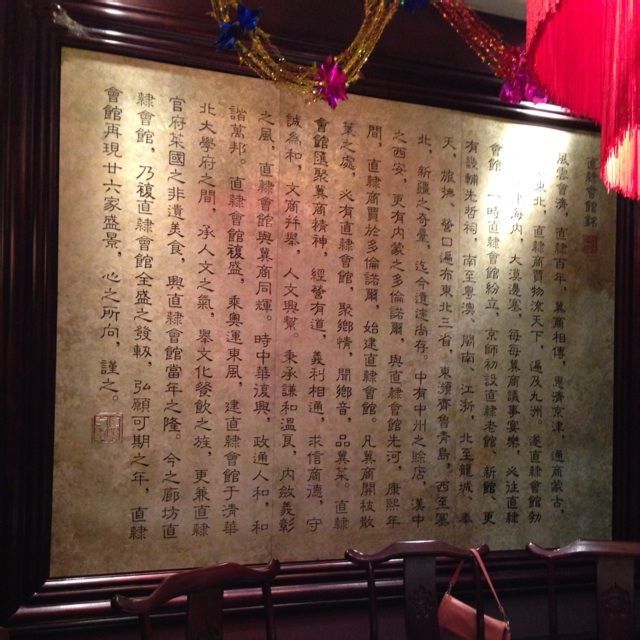 直隸會館銘
風雲會濟，直隸百年，冀商相傳，惠濟京津，通商蒙古，
東北，直隸商賈物流天下，遍及九洲。遂直隸會館勃
海內，大漠邊塞，每每冀商議事宴樂，必注直隸
會館，一時直隸會館紛立，京師初設直隸老館、新館、更
有畿輔先哲祠，南至粵澳、閩南、江浙，北至龍城、奉
天、旅撫、營口遍布東北三省，東據齊魯青島，西至塞
北，新疆之奇臺，迄今遺迹尚存，中有中州之賒店，漢中
之西安，更有內蒙之多倫諾爾，與直隸會館先河，康熙年
間，直隸商賈於多倫諾爾，始建直隸會館。凡冀商開枝散
葉之處，必有直隸會館，聚鄉情，聞鄉音，品冀菜。直隸
會館匯聚冀商精神，經營有道，義利相通，求信商德，守
誠為和，文商并舉，人文興幫。秉承謙和溫良，內斂義彰
之風，直隸會館與冀商同輝。時中華復興，政通人和，和
諧萬邦。直隸會館復盛，乘奧運東風，建直隸會館于清華
北大學府之間，承人文之氣，舉文化餐飲之旌，更兼直隸
官府菜國之非遺美食，興直隸會館當年之隆。今之廊坊直
隸會館，乃複直隸會館全盛之發軔，弘願可期之年，直隸
會館再現廿六家盛景，心之所向，謹之。